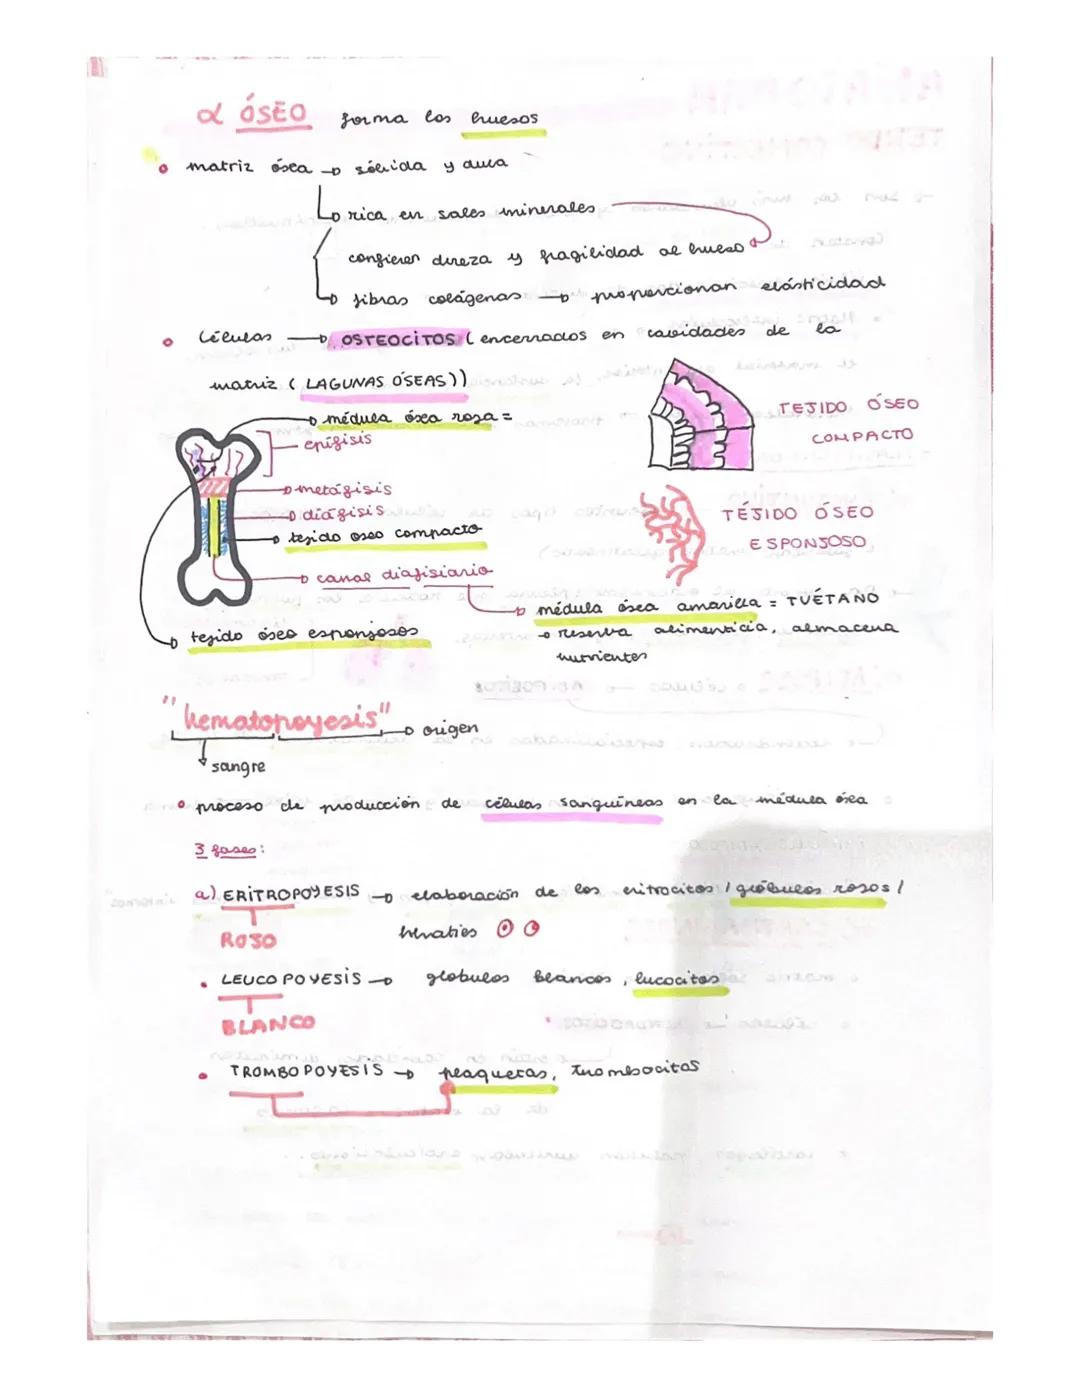 α ÓSEO forma los huesos
• matriz ósea → sólida y dura
→ rica en sales minerales
confieren dureza y fragilidad al hueso
→ fibras colágenas → proporcionan elásticidad
• Células → OSTEOCITOS (encerrados en cavidades de la
matriz (LAGUNAS ÓSEAS))
→ médula ósea roja =
epífisis
→ metáfisis
→ diáfisis
→ tejido oseo compacto
→ canal diafisiario
→ médula ósea amarilla = TUÉTANO
→ reserva alimenticia, almacena
nutrientes
→ tejido óseo esponjosos
TEJIDO ÓSEO
COMPACTO
TÉJIDO ÓSEO
ESPONJOSO
"hematopoyesis" → origen
sangre
• proceso de producción de células sanguíneas en la médula ósea
3 fases:
a) ERITROPOYESIS → elaboración de los eritrocitos / glóbulos rojos /
ROJO
hematies
• LEUCOPOYESIS → globulos blancos, lucocitos
BLANCO
• TROMBOPOYESIS → plaquetas, trombocitos